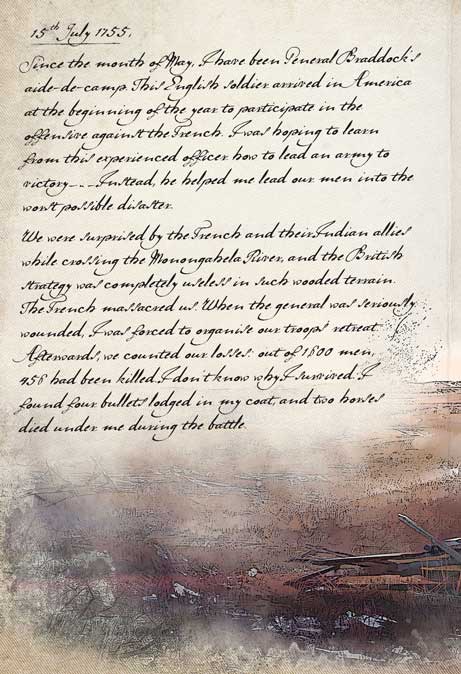 15th July 1755.
Since the month of May, I have been General Braddock's
aide-de-camp. This English soldier arrived in America
at the beginning of the year to participate in the
offensive against the French. I was hoping to learn
from this experienced officer how to lead an army to
victory... Instead, he helped me lead our men into the
worst possible disaster.
We were surprised by the French and their Indian allies
while crossing the Monongahela River, and the British
strategy was completely useless in such wooded terrain.
The French massacred us. When the general was seriously
wounded, I was forced to organise our troops' retreat.
Afterwards, we counted our losses: out of 1600 men,
456 had been killed. I don't know why I survived. I
found four bullets lodged in my coat, and two horses
died under me during the battle.